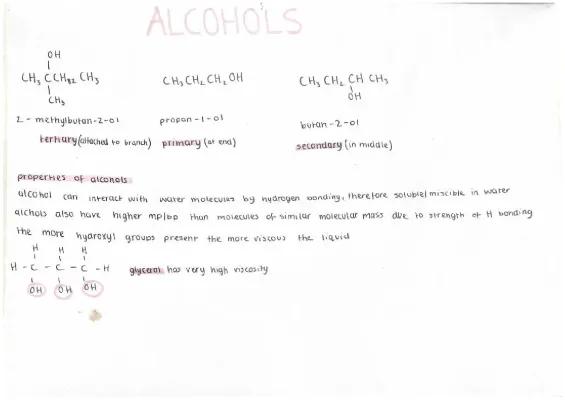 ALCOHOLS
OH
CH₃ CCH₂ CH₃
CH₃
CH₃CH₂CH₂OH
CH₃ CH₂ CH CH₃
OH
2 - methylbutan-2-ol
propan-1-ol
butan-2-ol
tertiary (attached to branch)
primary (at end)
secondary (in middle)
properties of alcohols
alcohol can interact with water molecules by hydrogen bonding, therefore soluble/miscible in water
alchols also have higher mp/bp than molecules of similar molecular mass due to strength of H bonding
the more hydroxyl groups present the more viscous the liquid
H H H
H - C - C - C - H
OH OH OH
glycerol has very high viscosity